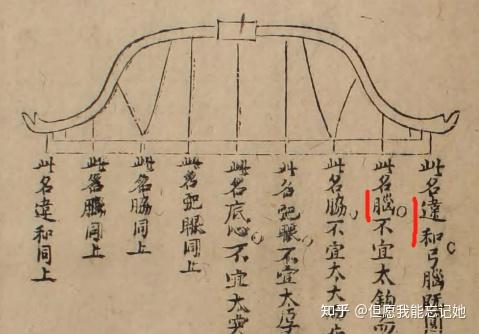 此名違和弓腦既
此名腦不宜太
此名脇不宜太大
此名肥眼不宜太厚
此名底心不宜太
此名肥眼同上
此名脇同上
此名腦同上
此名違和同上
知乎 @但愿我能忘记她